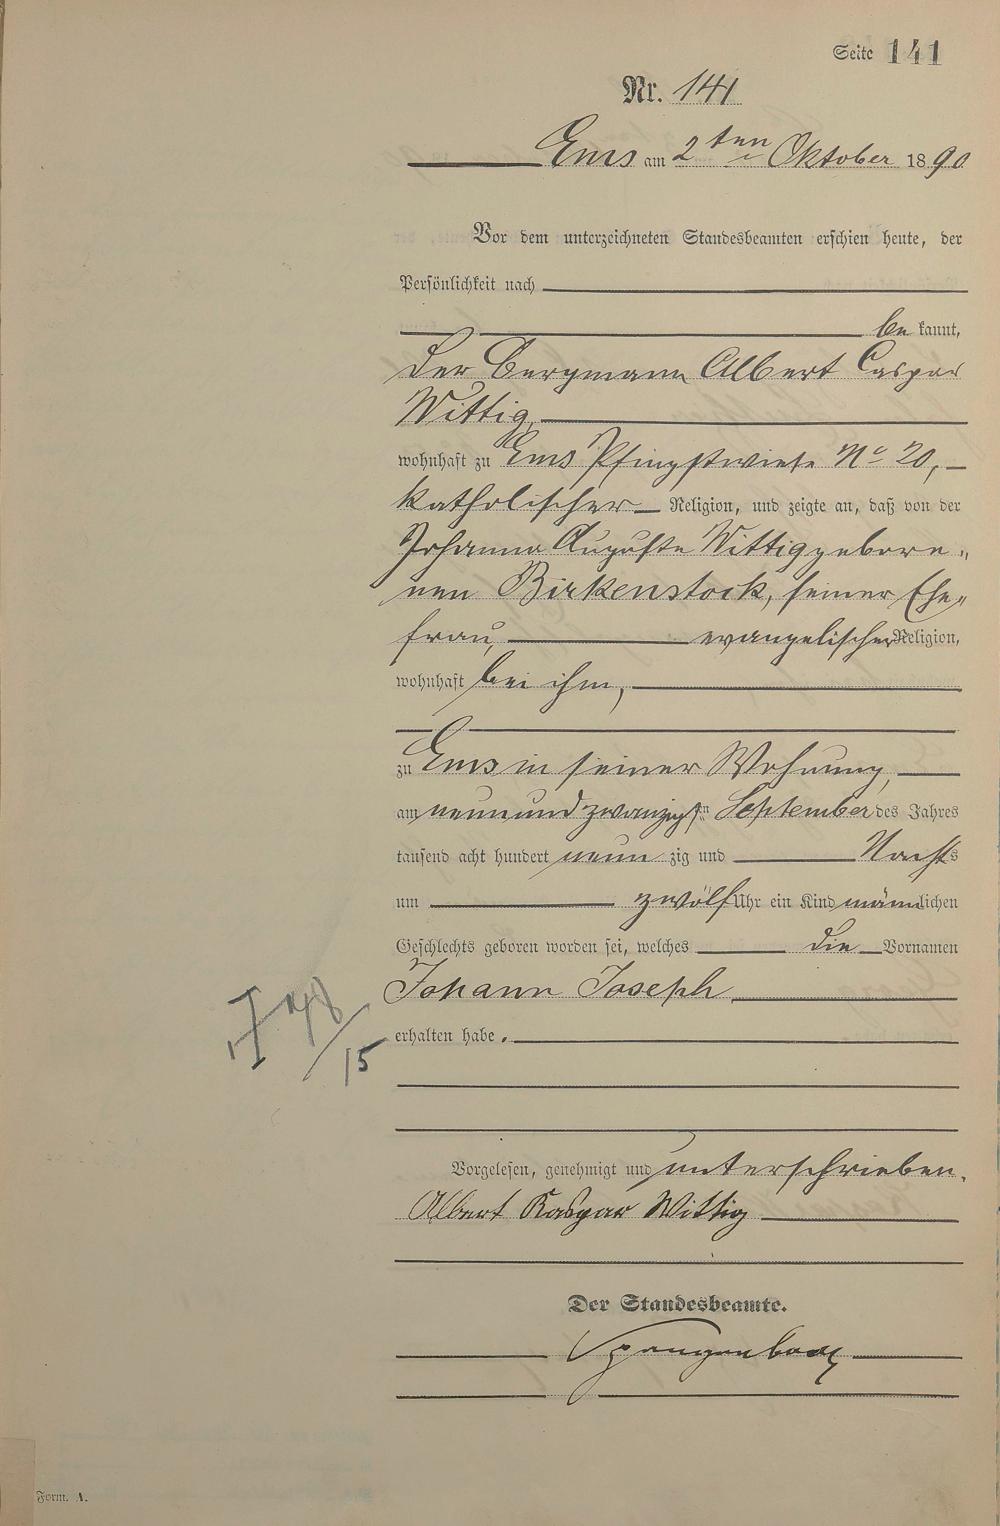 Seite 141
Nr. 141
Ems am 2ten Oktober 1890
Vor dem unterzeichneten Standesbeamten erschien heute, der
Persönlichkeit nach
be kannt,
der Bergmann Albert Caspar
Wittig,
wohnhaft zu Ems Pfingstwiese No 20,
katholischer Religion, und zeigte an, daß von der
Johanna Auguste Wittig gebore-
nen Birkenstock, seiner Ehe-
frau, evangelischer Religion,
wohnhaft bei ihm,
zu Ems in seiner Wohnung,
am neunundzwanzigsten September des Jahres
tausend acht hundert neun zig und Nachts
um zwölf Uhr ein Kind männlichen
Geschlechts geboren worden sei, welches die Vornamen
Johann Joseph
erhalten habe.
15
Vorgelesen, genehmigt und unterschrieben.
Albert Kaspar Wittig
Der Standesbeamte.
Spangenberg
Form. A.